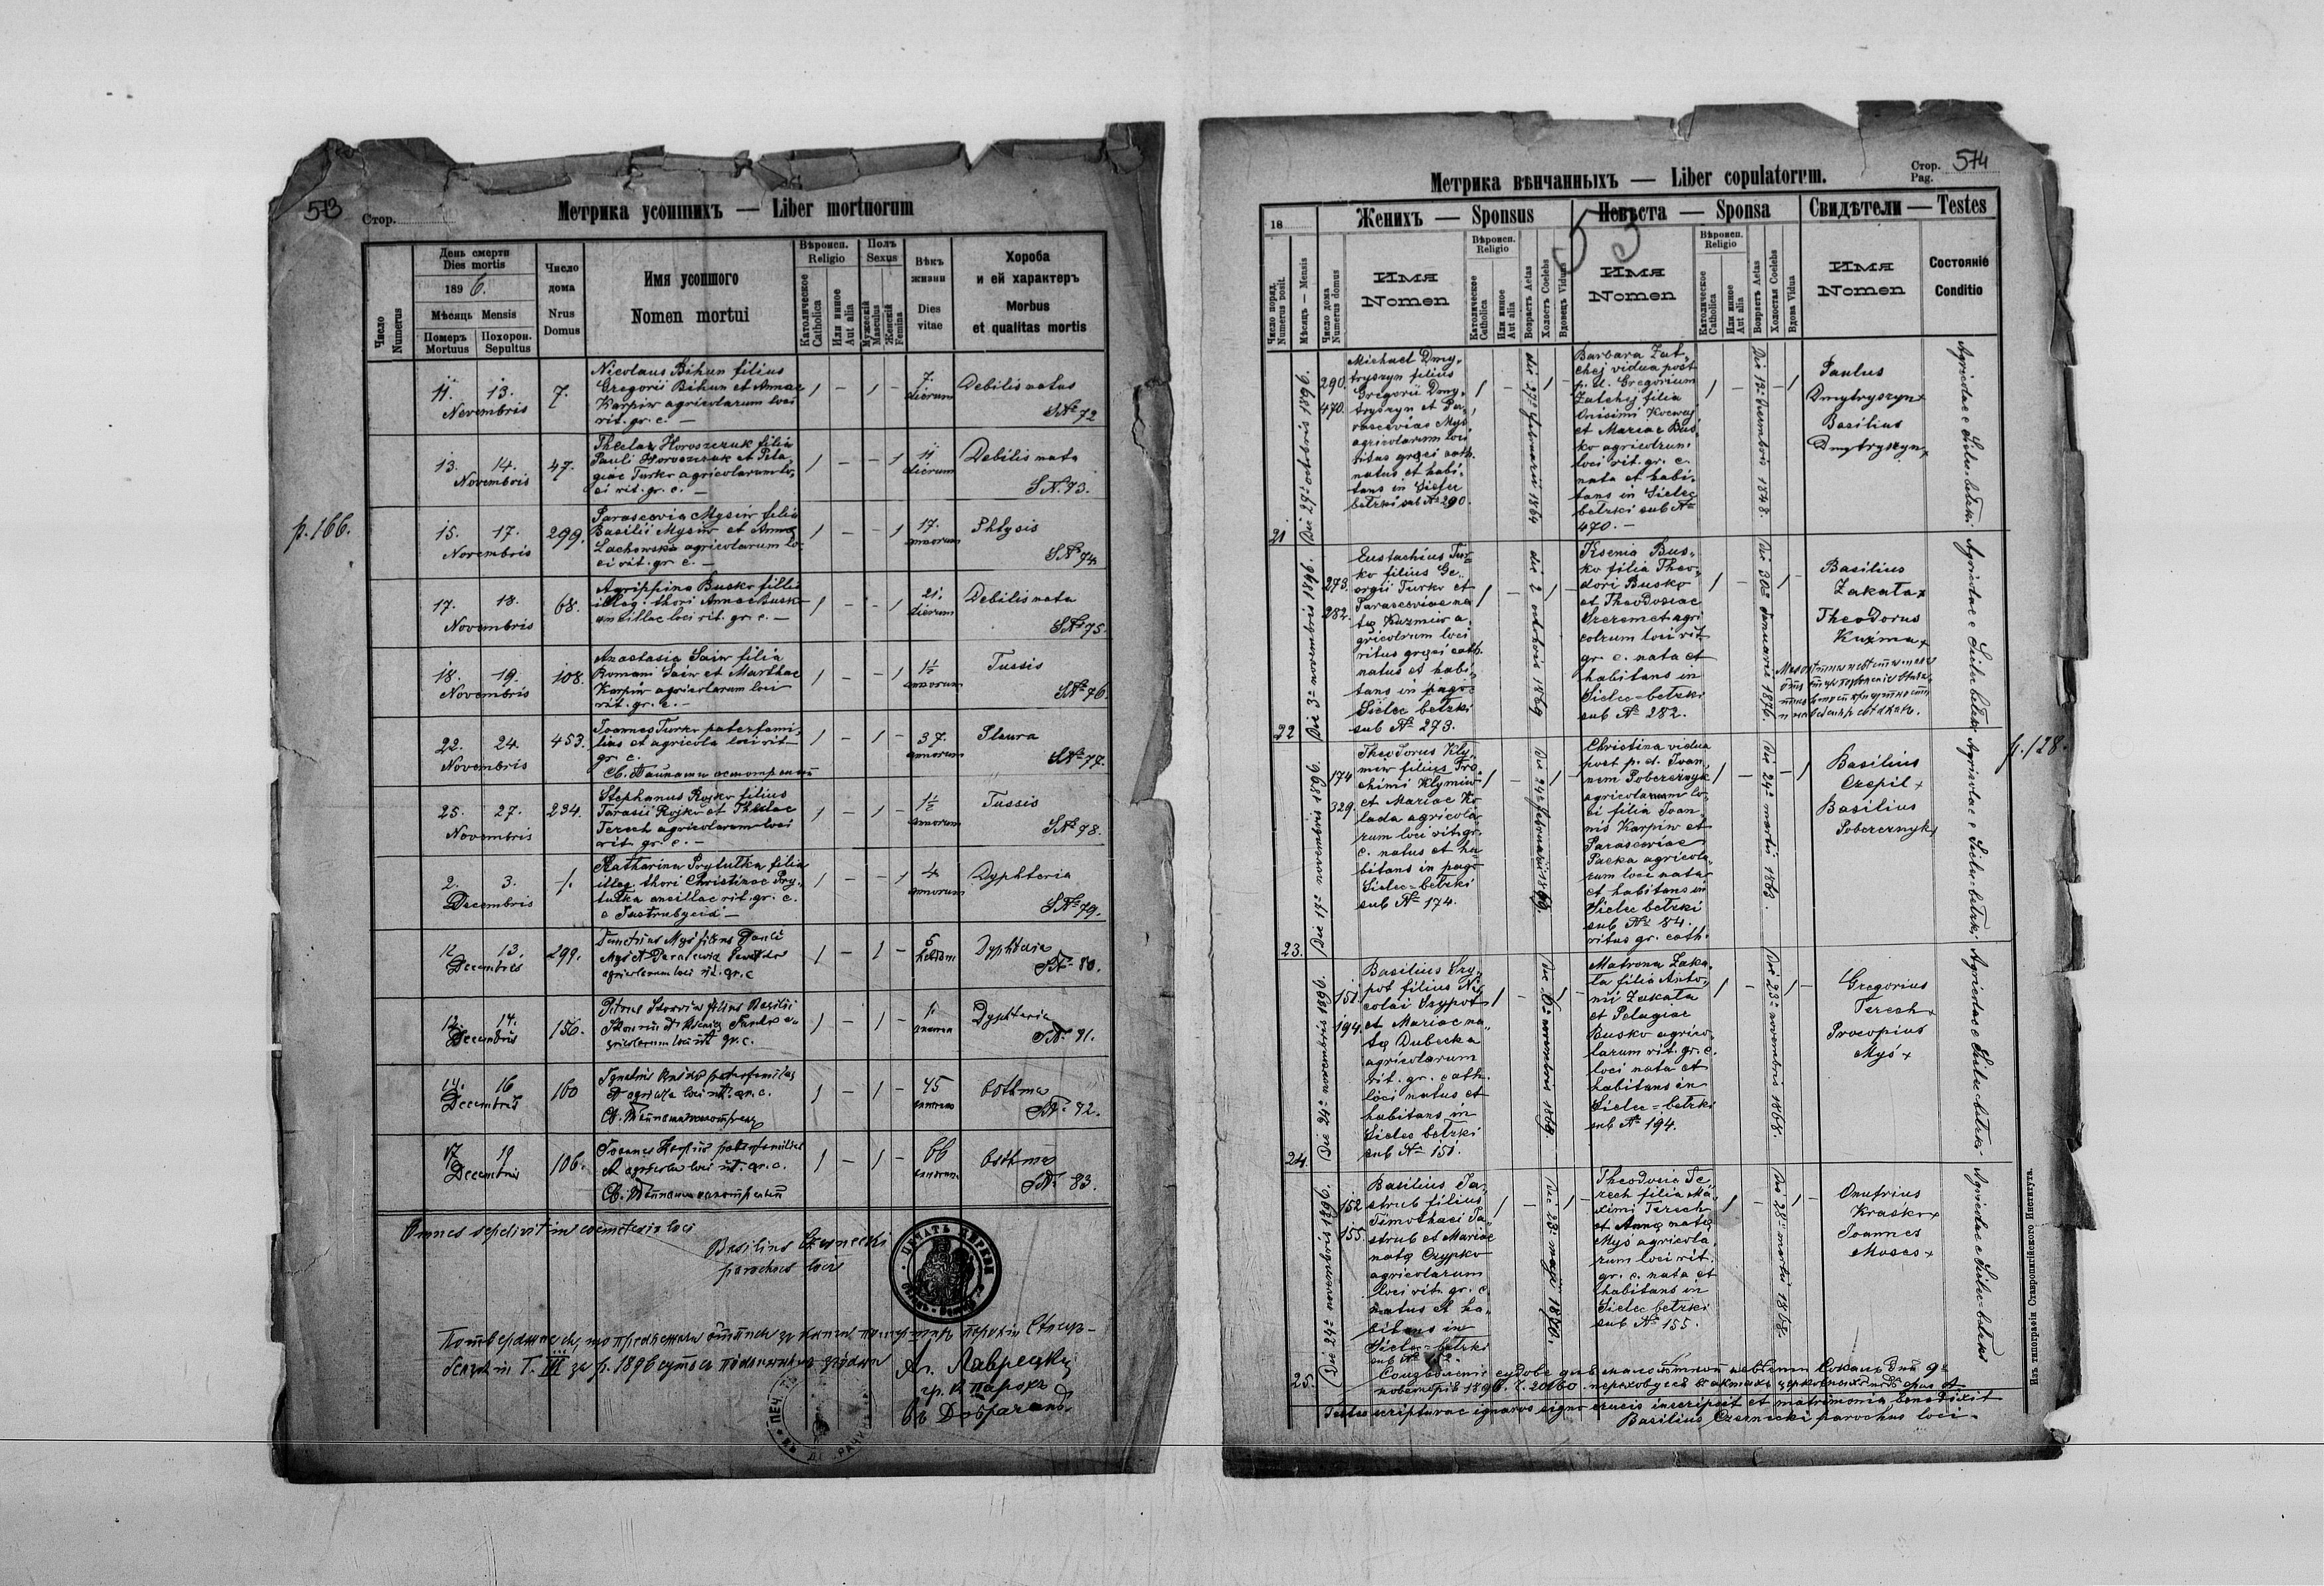 573
Стор.
Метрика усопшихъ — Liber mortuorum
Число
Numerus
День смерти
Dies mortis
1896.
Мѣсяць Mensis
Померъ
Mortuus
Похорон.
Sepultus
Число
дома
Nrus
Domus
Имя усопшого
Nomen mortui
Вѣроисп.
Religio
Католическое
Catholica
Или инное
Aut alia
Полъ
Sexus
Мужескій
Masculus
Женскій
Femina
Вѣкъ
жизни
Dies
vitae
Хороба
и ей характеръ
Morbus
et qualitas mortis
11. 13.
Novembris
7.
Nicolaus Bihun filius
Gregorii Bihun et Annae
Karpiw agricolarum loci
rit. gr. c. —
1 — 1 —
7.
dierum
Debilis natus
S№ 72
13. 14.
Novembris
47.
Theclar Horoszczuk filia
Pauli Horoszczuk et Pela-
giae Turko agricolarum lo-
ci rit. gr. c. —
1 — — 1
11
dierum
Debilis nata
S.N. 73.
p. 166.
15. 17.
Novembris
299.
Parascevia Mysiw filia
Basilii Mysiw et Annae
Lachowska agricolarum lo-
ci rit. gr. c. —
1 — — 1
17.
annorum
Phtysis
S№ 74
17. 18.
Novembris
68.
Agrippina Busko filia
illeg. thori Annae Busko
ancillae loci rit. gr. c. —
1 — — 1
21.
dierum
Debilis nata
S№ 75.
18. 19.
Novembris
108.
Anastasia Saiw filia
Romani Saiw et Marthae
Karpiw agricolarum loci
rit. gr. c. —
1 — — 1
1½
annorum
Tussis
S№ 76.
22. 24.
Novembris
453.
Ioannes Turko paterfami-
lias et agricola loci rit.
gr. c.
Св. Тайнами
1 — 1 —
37.
annorum
Pleura
S№ 77.
25. 27.
Novembris
234.
Stephanus Rojko filius
Tarasii Rojko et Theclae
Terech agricolarum loci
rit. gr. c. —
1 — 1 —
1½
annorum
Tussis
S№ 78.
2. 3.
Decembris
Katharina Prytulka filia
illeg. thori Christinae Pry-
tulka ancillae rit. gr. c.
1 — — 1
4
annorum
Dyphteria
S№ 79.
12 13.
Decembris
299.
Demetrius Myś filius Pauli
agricolarum loci rit. gr. c
1 — 1 —
5
hebdom
Dyphteria
S№ 80.
12. 14.
Decembris
156.
Petrus filius Basilii
agricolarum loci rit. gr. c.
1 — 1 —
1.
Dyphteria
S№ 81.
14. 16
Decembris
160
Ignatius Busko paterfamilias
et agricola loci rit. gr. c.
1 — 1 —
45
annorum
Asthma
S№ 82.
17 19
Decembris
106.
Ioannes Karpiw paterfamilias
et agricola loci rit. gr. c.
1 — 1 —
66
annorum
Asthma
S№ 83.
Omnes sepelivit in coemeterio loci
Basilius Czernecki
parochus loci
ПЕЧАТЬ ЦЕРКВИ
Ал. Лаврецкій
гр. к. парохъ
въ Добрачинѣ
Стор.
Pag. 574
Метрика вѣнчанныхъ — Liber copulatorum.
18
Женихъ — Sponsus
Невѣста — Sponsa
Свидѣтели — Testes
53
Число поряд.
Numerus posit.
Мѣсяць — Mensis
Число дома
Numerus domus
Имя
Nomen
Вѣроисп.
Religio
Католическое
Catholica
Или инное
Aut alia
Возрастъ Aetas
Холостъ Coelebs
Вдовецъ Viduus
Имя
Nomen
Вѣроисп.
Religio
Католическое
Catholica
Или инное
Aut alia
Возрастъ Aetas
Холостая Coelebs
Вдова Vidua
Имя
Nomen
Состояніе
Conditio
21
Die 29ª octobris 1896.
290.
470.
Michael Dmy-
tryszyn filius
Gregorii Dmy-
tryszyn et Pa-
rasceviae Myś
agricolarum loci
ritus graeci cath.
natus et habi-
tans in Sielec
betzki sub № 290.
die 27ª februarii 1864
Barbara Zat-
chej vidua post
p. d. Gregorium
Zatchij filia
Onisimi
et Mariae Bus-
ko agricolrum
loci rit. gr. c.
nata et habi-
tans in Sielec
betzki sub №
470. —
1848.
Paulus
Dmytryszyn +
Basilius
Dmytryszyn +
Agricolae e Sielec-betzki
22
Die 3ª novembris 1896.
273.
282.
Eustachius Tur-
ko filius Ge-
orgii Turko et
Parasceviae na-
tae Kuzmiw a-
gricolrum loci
ritus graeci cath.
natus et habi-
tans in pago
Sielec betzki
sub № 273.
die 2 octobris 1869
Ksenia Bus-
ko filia Theo-
dori Busko
et Theodosiae
Szeremet agri-
colrum loci rit.
gr. c. nata et
habitans in
Sielec-betzki
sub № 282.
Die 30ª januarii 1876.
Basilius
Zakala +
Theodorus
Kuzma +
Agricolae e Sielec betzki
23.
Die 17ª novembris 1896.
174
329.
Theodorus Kly-
miw filius Tro-
chimi Klymiw
et Mariae Ko-
lada agricola-
rum loci rit. gr.
c. natus et ha-
bitans in pago
Sielec-betzki
sub № 174.
Die 24ª februarii 1869.
Christina vidua
post p. d. Ioan-
nem Poberežnyk
agricolarum lo-
ci filia Ioan-
nis Karpiw et
Parasceviae
Packa agricola-
rum loci nata
et habitans in
Sielec betzki
sub № 84.
ritus gr. cath.
Die 24ª martii 1863.
Basilius
Czepil +
Basilius
Poberežnyk +
Agricolae e Sielec-betzki
f. 128.
24.
Die 24ª novembris 1896.
151.
194.
Basilius Szy-
pot filius Ni-
colai Szypot
et Mariae na-
tae Dubecka
agricolarum
rit. gr. cath.
loci natus et
habitans in
Sielec betzki
sub № 151.
novembris 1869.
Matrona Zaka-
la filia Anto-
nii Zakala
et Pelagiae
Busko agrico-
larum rit. gr. c.
loci nata et
habitans in
Sielec-betzki
sub № 194.
Die 23ª novembris 1868.
Gregorius
Terech +
Procopius
Myś +
Agricolae e Sielec-betzki
25.
Die 24ª novembris 1896.
152
155.
Basilius Ja-
strub filius
Timothaei Ja-
strub et Mariae
natae Czypko
agricolarum
loci rit. gr. c.
natus et ha-
bitans in
Sielec-betzki
Die 23ª maji 1870.
Theodosia Te-
rech filia Ma-
ximi Terech
et Annae natae
Myś agricola-
rum loci rit.
gr. c. nata et
habitans in
Sielec betzki
sub № 155.
Die 28ª martii 1868.
Onufrius
Krasko +
Ioannes
Moses +
Agricolae e Sielec-betzki
Testes scripturae ignaros signo crucis inscripsit et matrimonia benedixit
Basilius Czernecki parochus loci.
Изъ типографіи Ставропигійского Института.